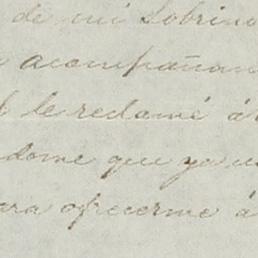 de mi Sobrino
acompañan
le reclamé á
dome que ya
ara ofrecerme á